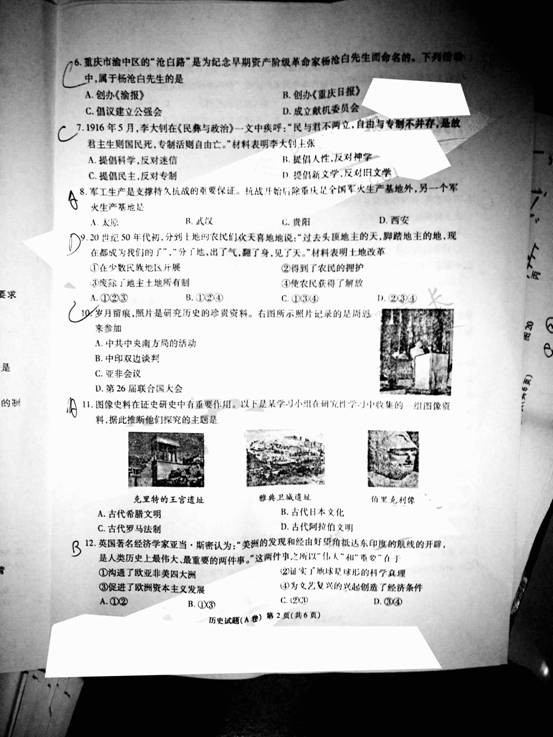 C
6. 重庆市渝中区的“沧白路”是为纪念早期资产阶级革命家杨沧白先生而命名的。下列
中,属于杨沧白先生的是
A. 创办《渝报》 B. 创办《重庆日报》
C. 倡议建立公强会 D. 成立献机委员会
C
7. 1916 年 5 月,李大钊在《民彝与政治》一文中疾呼:“民与君不两立,自由与专制不并存,是故
君主生则国民死,专制活则自由亡。”材料表明李大钊主张
A. 提倡科学,反对迷信 B. 提倡人性,反对神学
C. 提倡民主,反对专制 D. 提倡新文学,反对旧文学
A
8. 军工生产是支撑持久抗战的重要保证。抗战开始后除重庆是全国军火生产基地外,另一个军
火生产基地是
A. 太原 B. 武汉 C. 贵阳 D. 西安
D
9. 20 世纪 50 年代初,分到土地的农民们欢天喜地地说:“过去头顶地主的天,脚踏地主的地,现
在都成为我们的了”,“分了地,出了气,翻了身,见了天。”材料表明土地改革
①在少数民族地区开展 ②得到了农民的拥护
③废除了地主土地所有制 ④使农民获得了解放
A. ①②③ B. ①②④ C. ①③④ D. ②③④
C
10. 岁月留痕,照片是研究历史的珍贵资料。右图所示照片记录的是周恩
来参加
A. 中共中央南方局的活动
B. 中印双边谈判
C. 亚非会议
D. 第 26 届联合国大会
A
11. 图像史料在证史研史中有重要作用。以下是某学习小组在研究性学习中收集的一组图像资
料,据此推断他们探究的主题是
克里特的王宫遗址 雅典卫城遗址 伯里克利像
A. 古代希腊文明 B. 古代日本文化
C. 古代罗马法制 D. 古代阿拉伯文明
B
12. 英国著名经济学家亚当·斯密认为:“美洲的发现和经由好望角抵达东印度的航线的开辟,
是人类历史上最伟大、最重要的两件事。”这两件事之所以“伟大”和“重要”在于
①沟通了欧亚非美四大洲 ②证实了地球是球形的科学真理
③促进了欧洲资本主义发展 ④为文艺复兴的兴起创造了经济条件
A. ①② B. ①③ C. ②③ D. ③④
历史试题(A卷) 第 2 页(共 6 页)
要求
是
的制